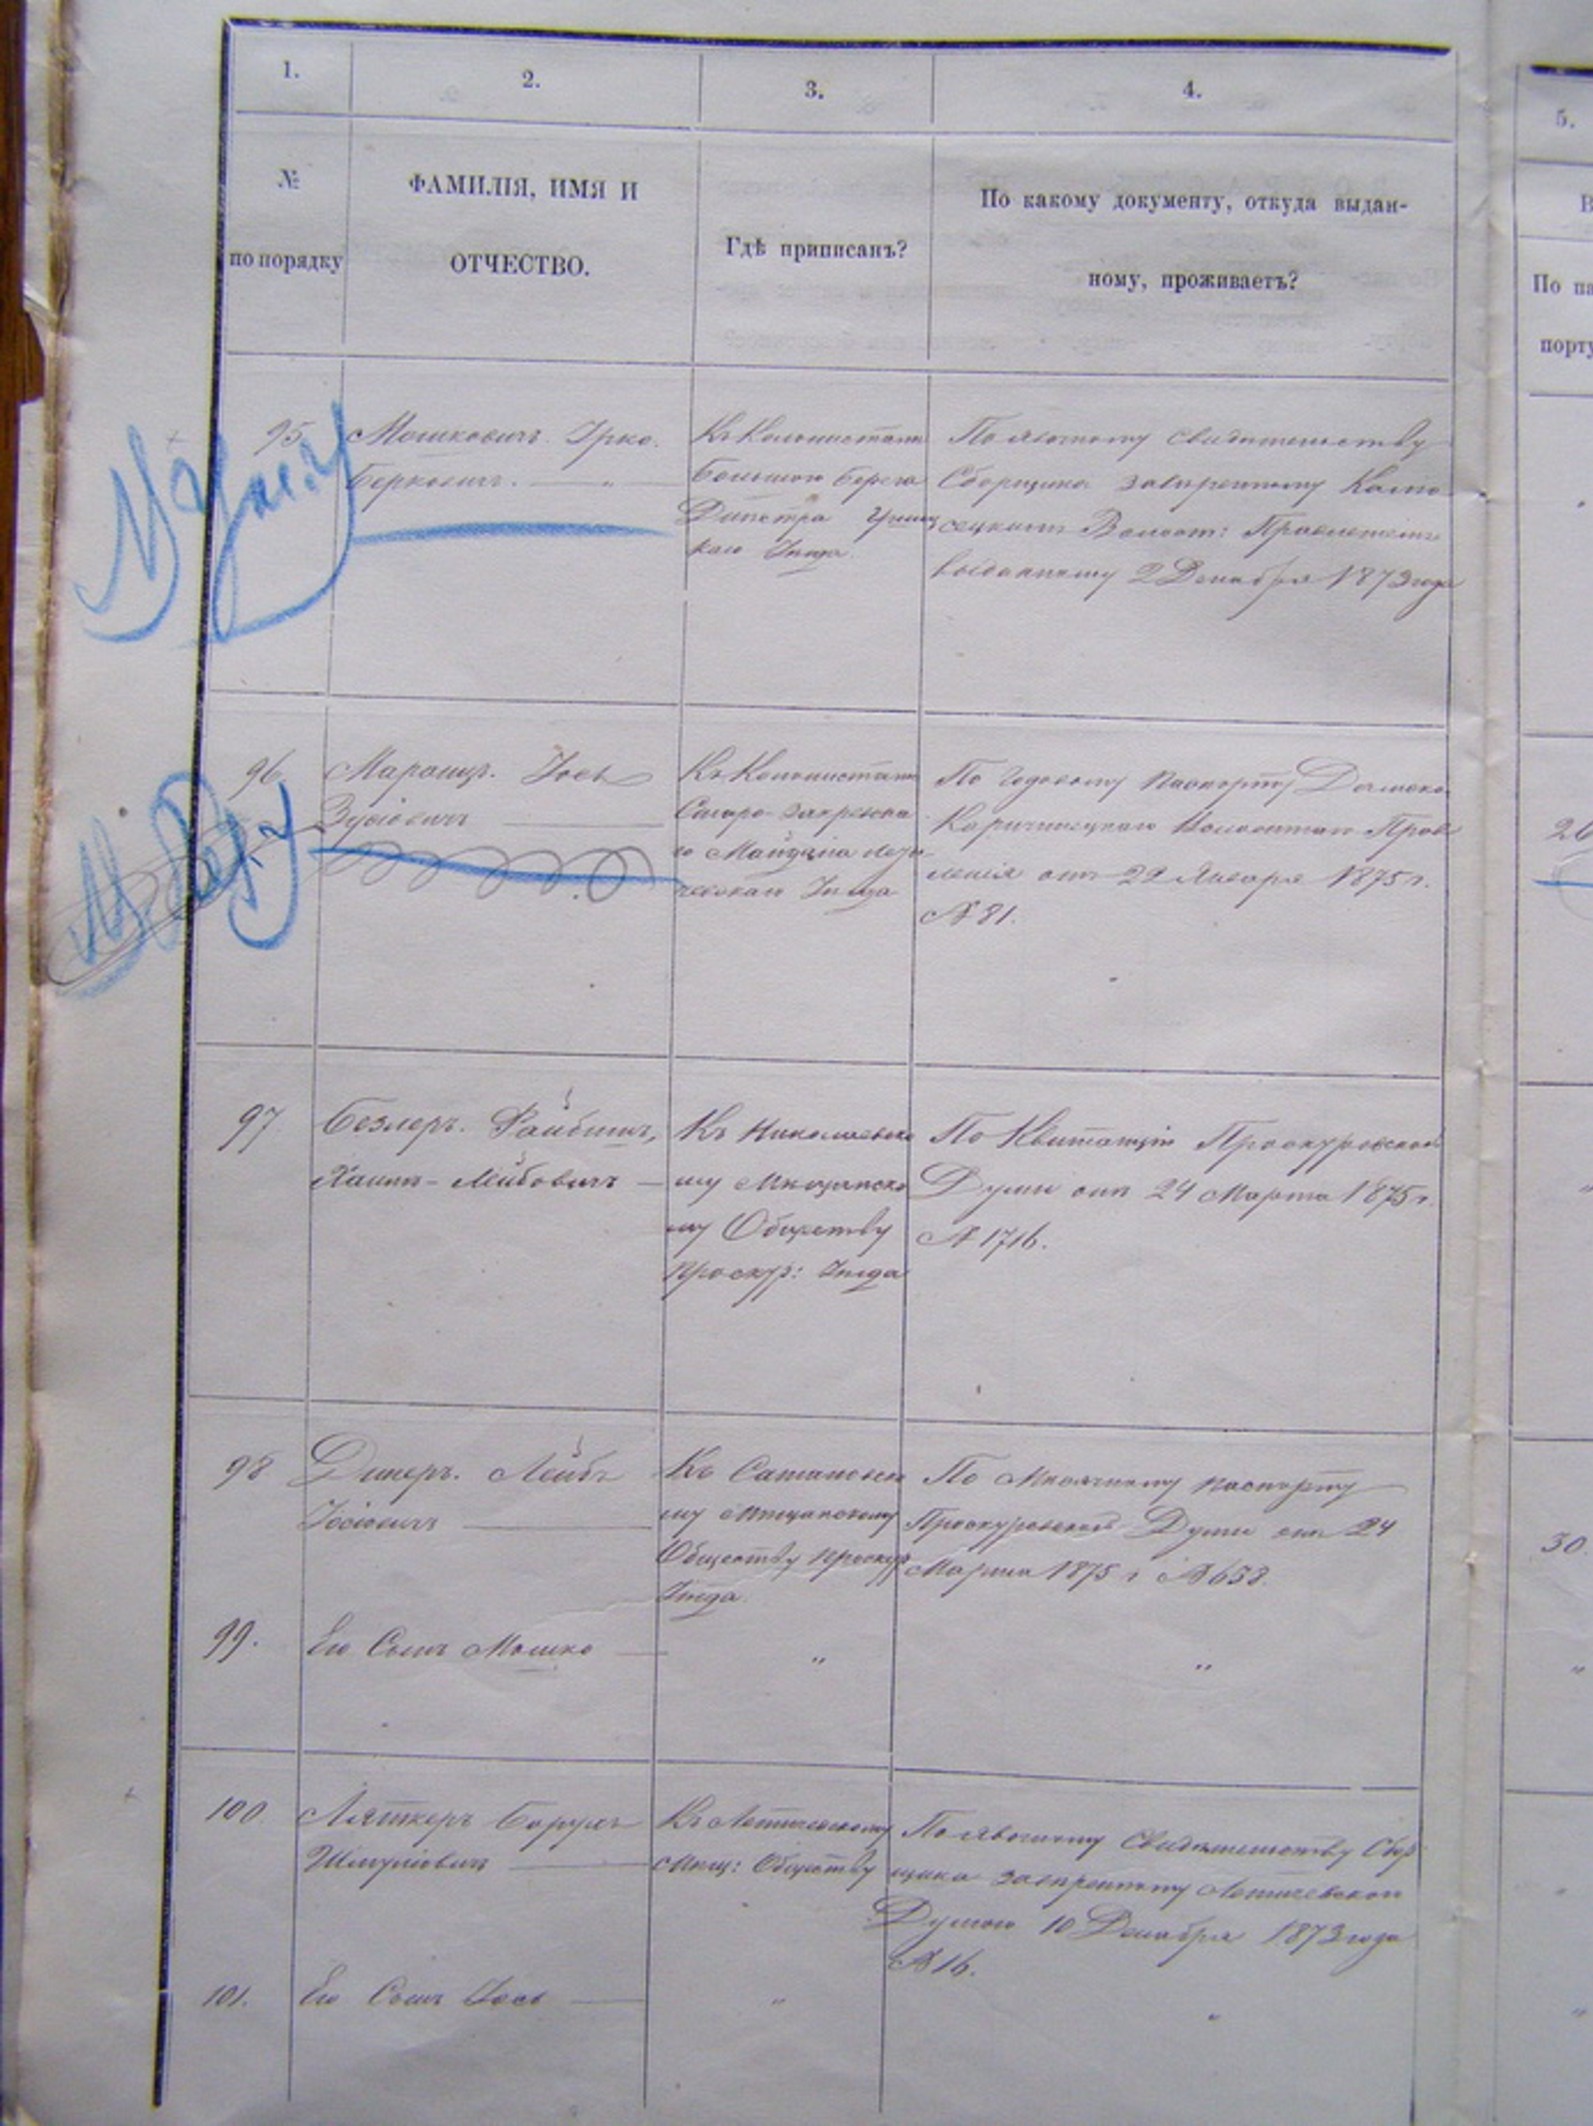 1.
2.
3.
4.
5.
№
по порядку
ФАМИЛІЯ, ИМЯ И
ОТЧЕСТВО.
Гдѣ приписанъ?
По какому документу, откуда выдан-
ному, проживаетъ?
По па
порту
95
Мошковичъ. Ирко.
Берковичъ. — „ —
Къ Колонистамъ
Большого Берега
Днѣстра
каго Уѣзда.
По явочному свидѣтельству
Сборщика завѣренному
Волост: Правленіемъ
выданному 2 Декабря 1873 года
96
Маранцъ. Іось
Зусіовичъ
Къ Колонистамъ
Старо-Закревска
го Майдана Лети
чевскаго Уѣзда
По Годовому Паспорту
Волостнаго Прав
ленія отъ 22 Января 1875 г.
№ 81.
20
97
Безлеръ. Файбишъ,
Хаимъ-Лейбовичъ —
Къ Николаевско
му Мѣщанско
му Обществу
Проскур: Уѣзда
По Квитанціи Проскуровской
Думы отъ 24 Марта 1875 г.
№ 1716.
98
Динеръ. Лейбъ
Іосіовичъ
Къ Сатановско
му Мѣщанскому
Обществу Проскур
Уѣзда.
По Мѣсячному Паспорту
Проскуровской Думы отъ 24
Марта 1875 г. № 653.
30.
99.
Его Сынъ Мошко —
„
„
100
Ляткеръ Борухъ
Шмуліовичъ —
Къ Летичевскому
Мѣщ: Обществу
По явочному Свидѣтельству Сбор
щика завѣренному Летичевской
Думою 10 Декабря 1873 года
№ 16.
101.
Его Сынъ Іось —
„
„